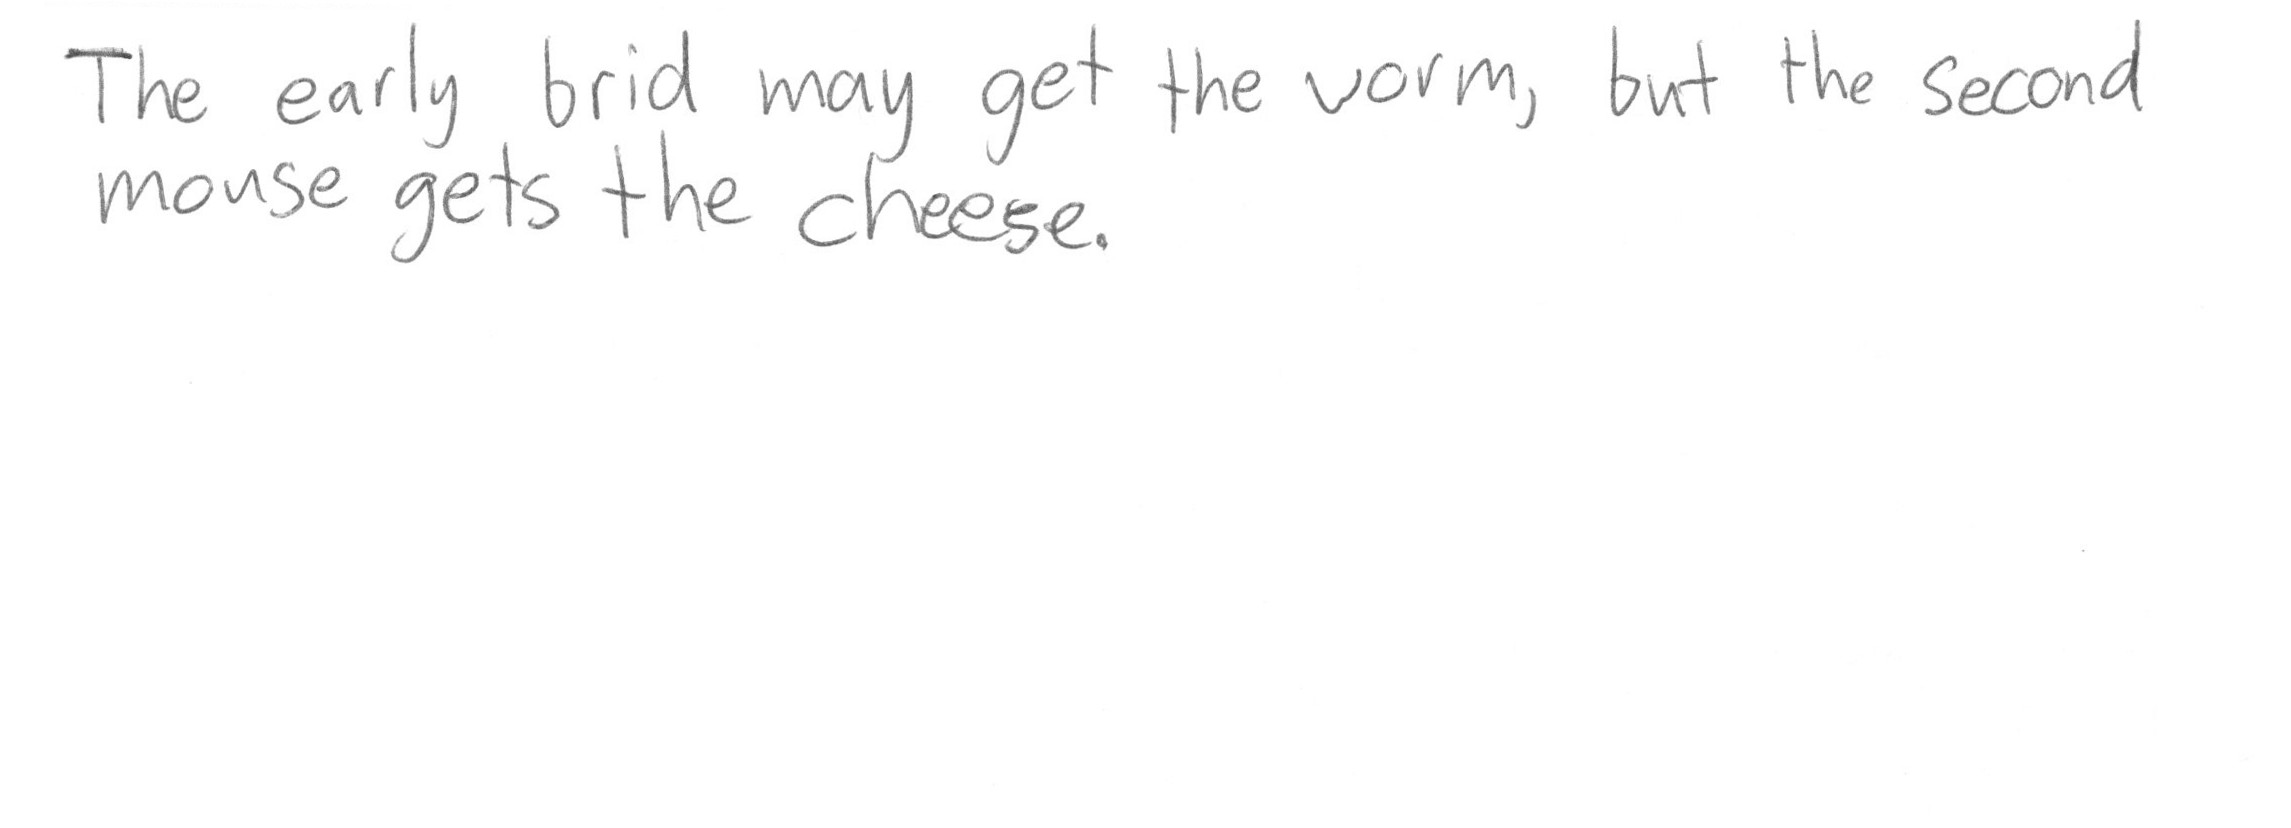 The early brid may get the vorm, but the second
mouse gets the cheese.